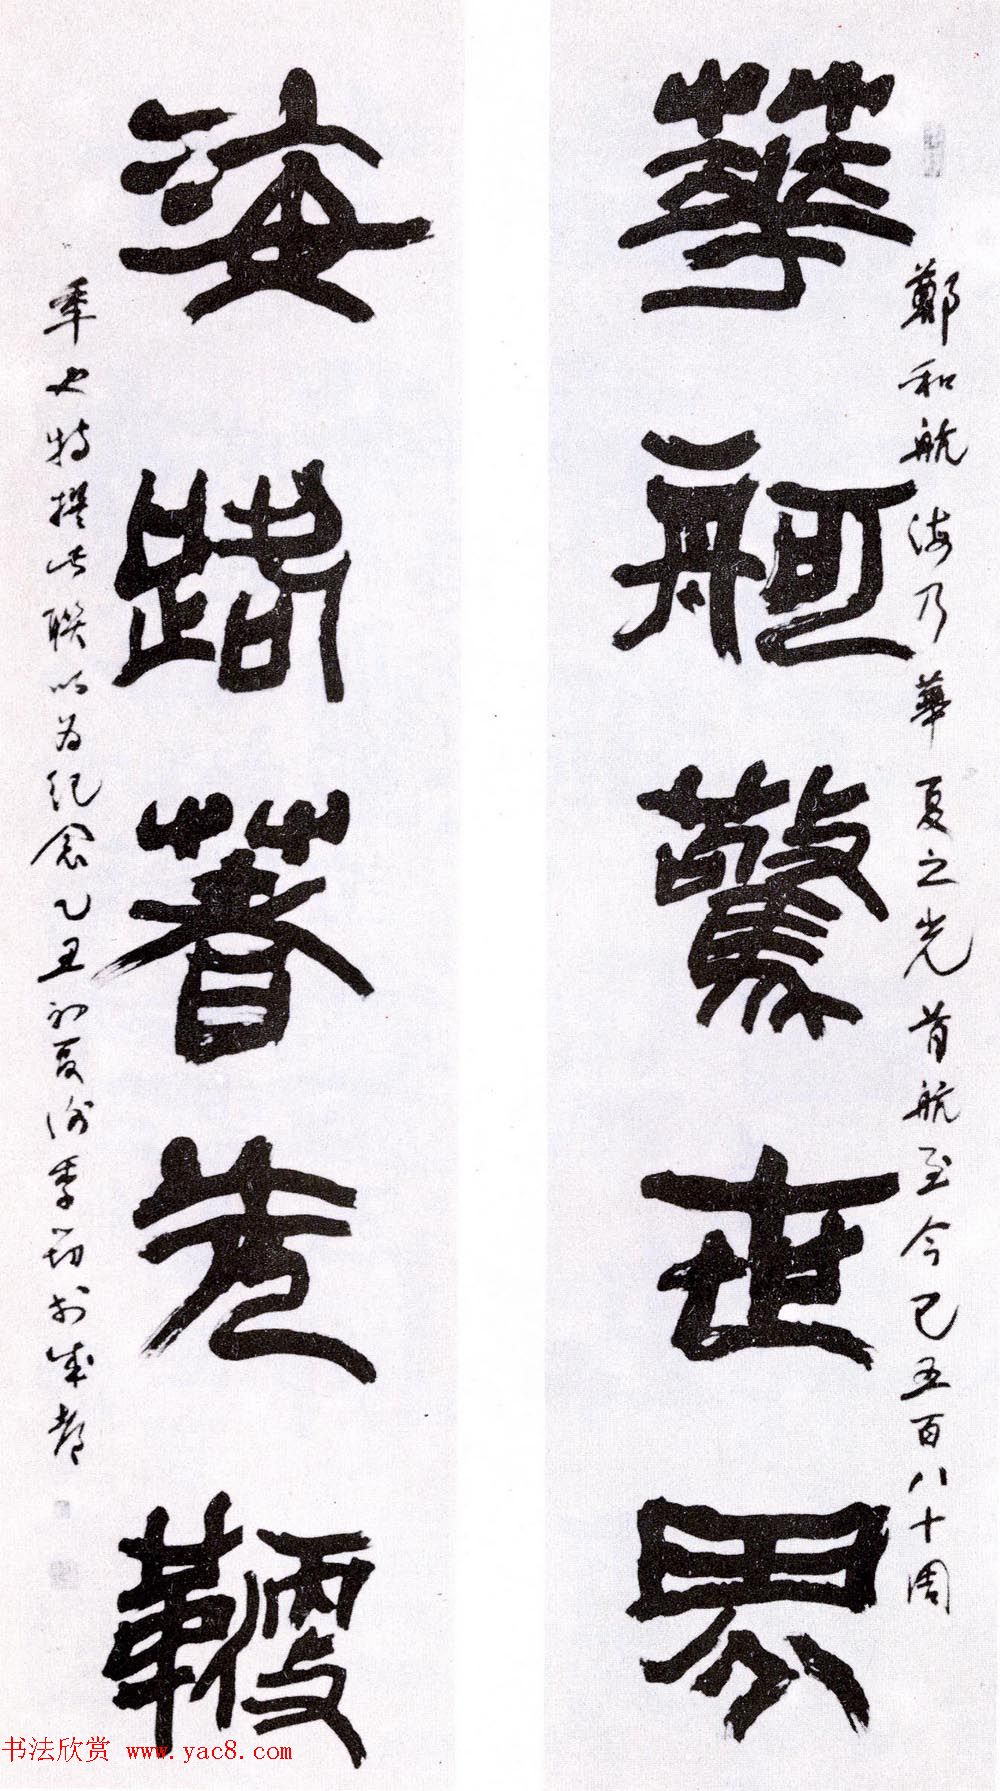 鄭和航海乃華夏之光首航至今已五百八十周
華舸驚世界
海著先鞭
年也特撰此聯以为纪念乙丑初夏谢季筠於成都
书法欣赏 www.yac8.com